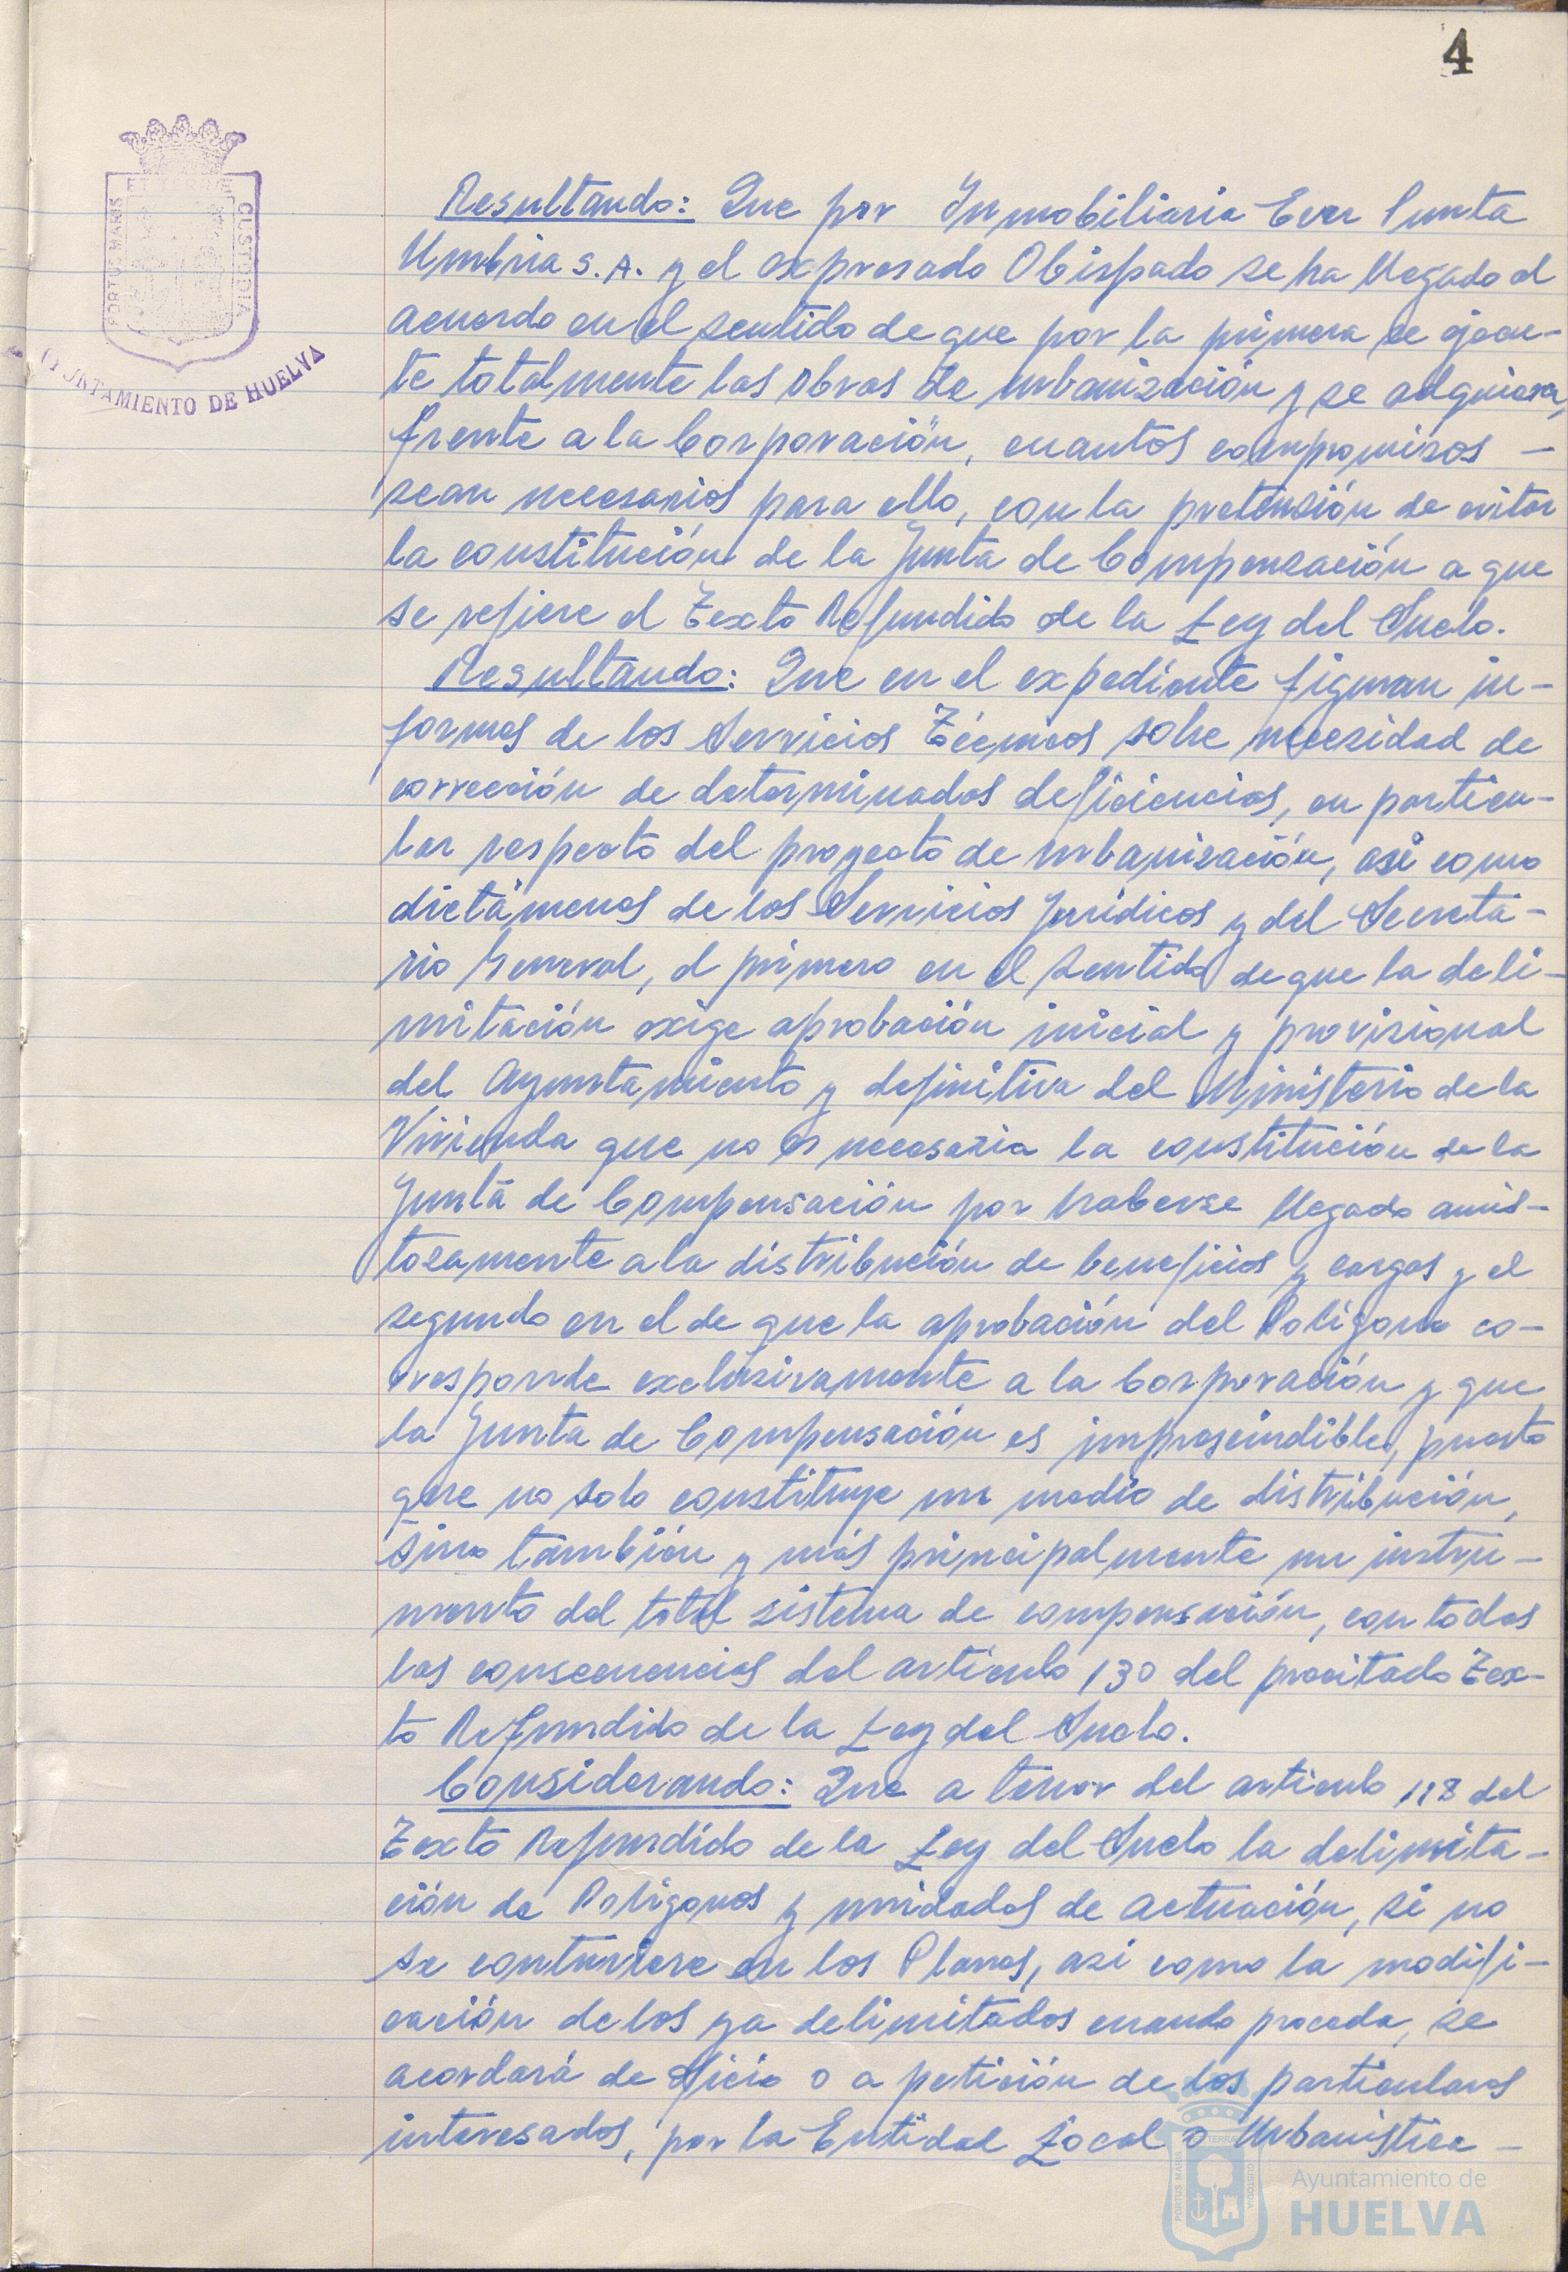 4
ET TERRÆ
PORTUS MARIS
CUSTODIA
AYUNTAMIENTO DE HUELVA
Resultando: Que por Inmobiliaria Ever Punta
Umbria S.A. y el expresado Obispado se ha llegado al
acuerdo en el sentido de que por la primera se ejecu-
te totalmente las obras de urbanización y se adquiera,
frente a la Corporación, cuantos compromisos -
sean necesarios para ello, con la pretensión de evitar
la constitución de la Junta de Compensación a que
se refiere el Texto Refundido de la Ley del Suelo.
Resultando: Que en el expediente figuran in-
formes de los Servicios Técnicos sobre necesidad de
corrección de determinadas deficiencias, en particu-
lar respecto del proyecto de urbanización, así como
dictámenes de los Servicios Jurídicos y del Secreta-
rio General, el primero en el sentido de que la deli-
mitación exige aprobación inicial y provisional
del Ayuntamiento y definitiva del Ministerio de la
Vivienda que no es necesaria la constitución de la
Junta de Compensación por haberse llegado amis-
tosamente a la distribución de beneficios y cargas y el
segundo en el de que la aprobación del Polígono co-
rresponde exclusivamente a la Corporación y que
la Junta de Compensación es imprescindible, puesto
que no solo constituye un medio de distribución,
sino también y más principalmente un instru-
mento del total sistema de compensación, con todas
las consecuencias del artículo 130 del precitado Tex-
to Refundido de la Ley del Suelo.
Considerando: Que a tenor del artículo 118 del
Texto Refundido de la Ley del Suelo la delimita-
ción de Polígonos y unidades de actuación, si no
se contuviere en los Planes, así como la modifi-
cación de los ya delimitados cuando proceda, se
acordará de oficio o a petición de los particulares
interesados, por la Entidad Local o Urbanística -
PORTUS MARIS
ET TERRÆ
CUSTODIA
Ayuntamiento de
HUELVA